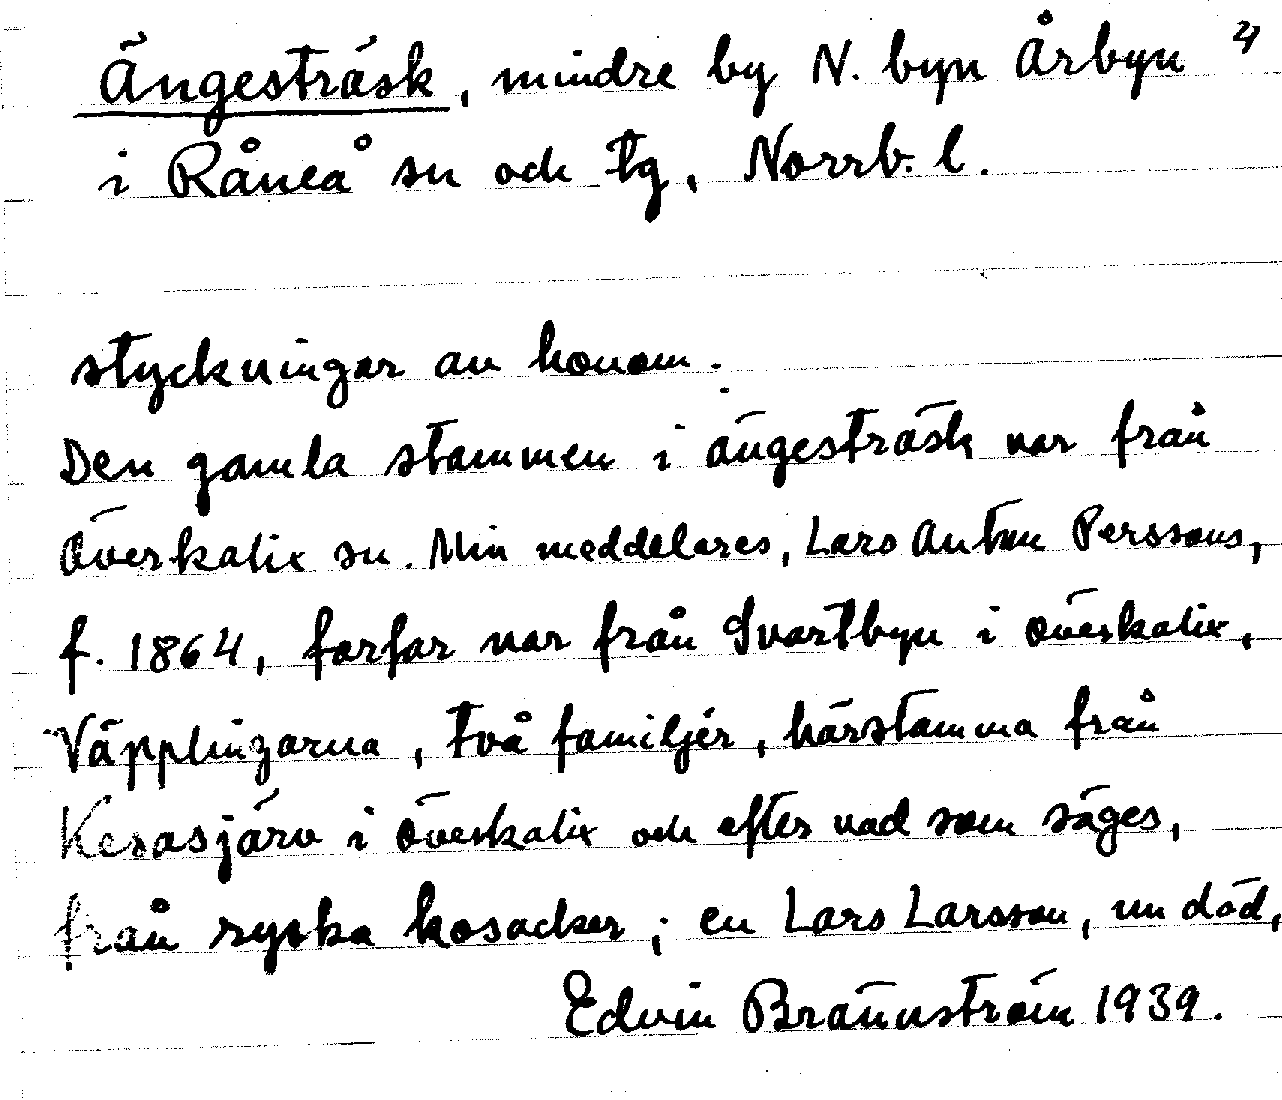 Ängesträsk, mindre by N. byn Årbyn 4
i Råneå sn och tg, Norrb. l.
styckningar av honom.
Den gamla stammen i Ängesträsk var från
Överkalix sn. Min meddelares, Lars Anton Perssons,
f. 1864, farfar var från Svartbyn i Överkalix,
Väpplingarna, två familjer, härstamma från
Kesasjärv i Överkalix och efter vad som säges,
från ryska kosacker; en Lars Larsson, nu död,
Edvin Brännström 1939.